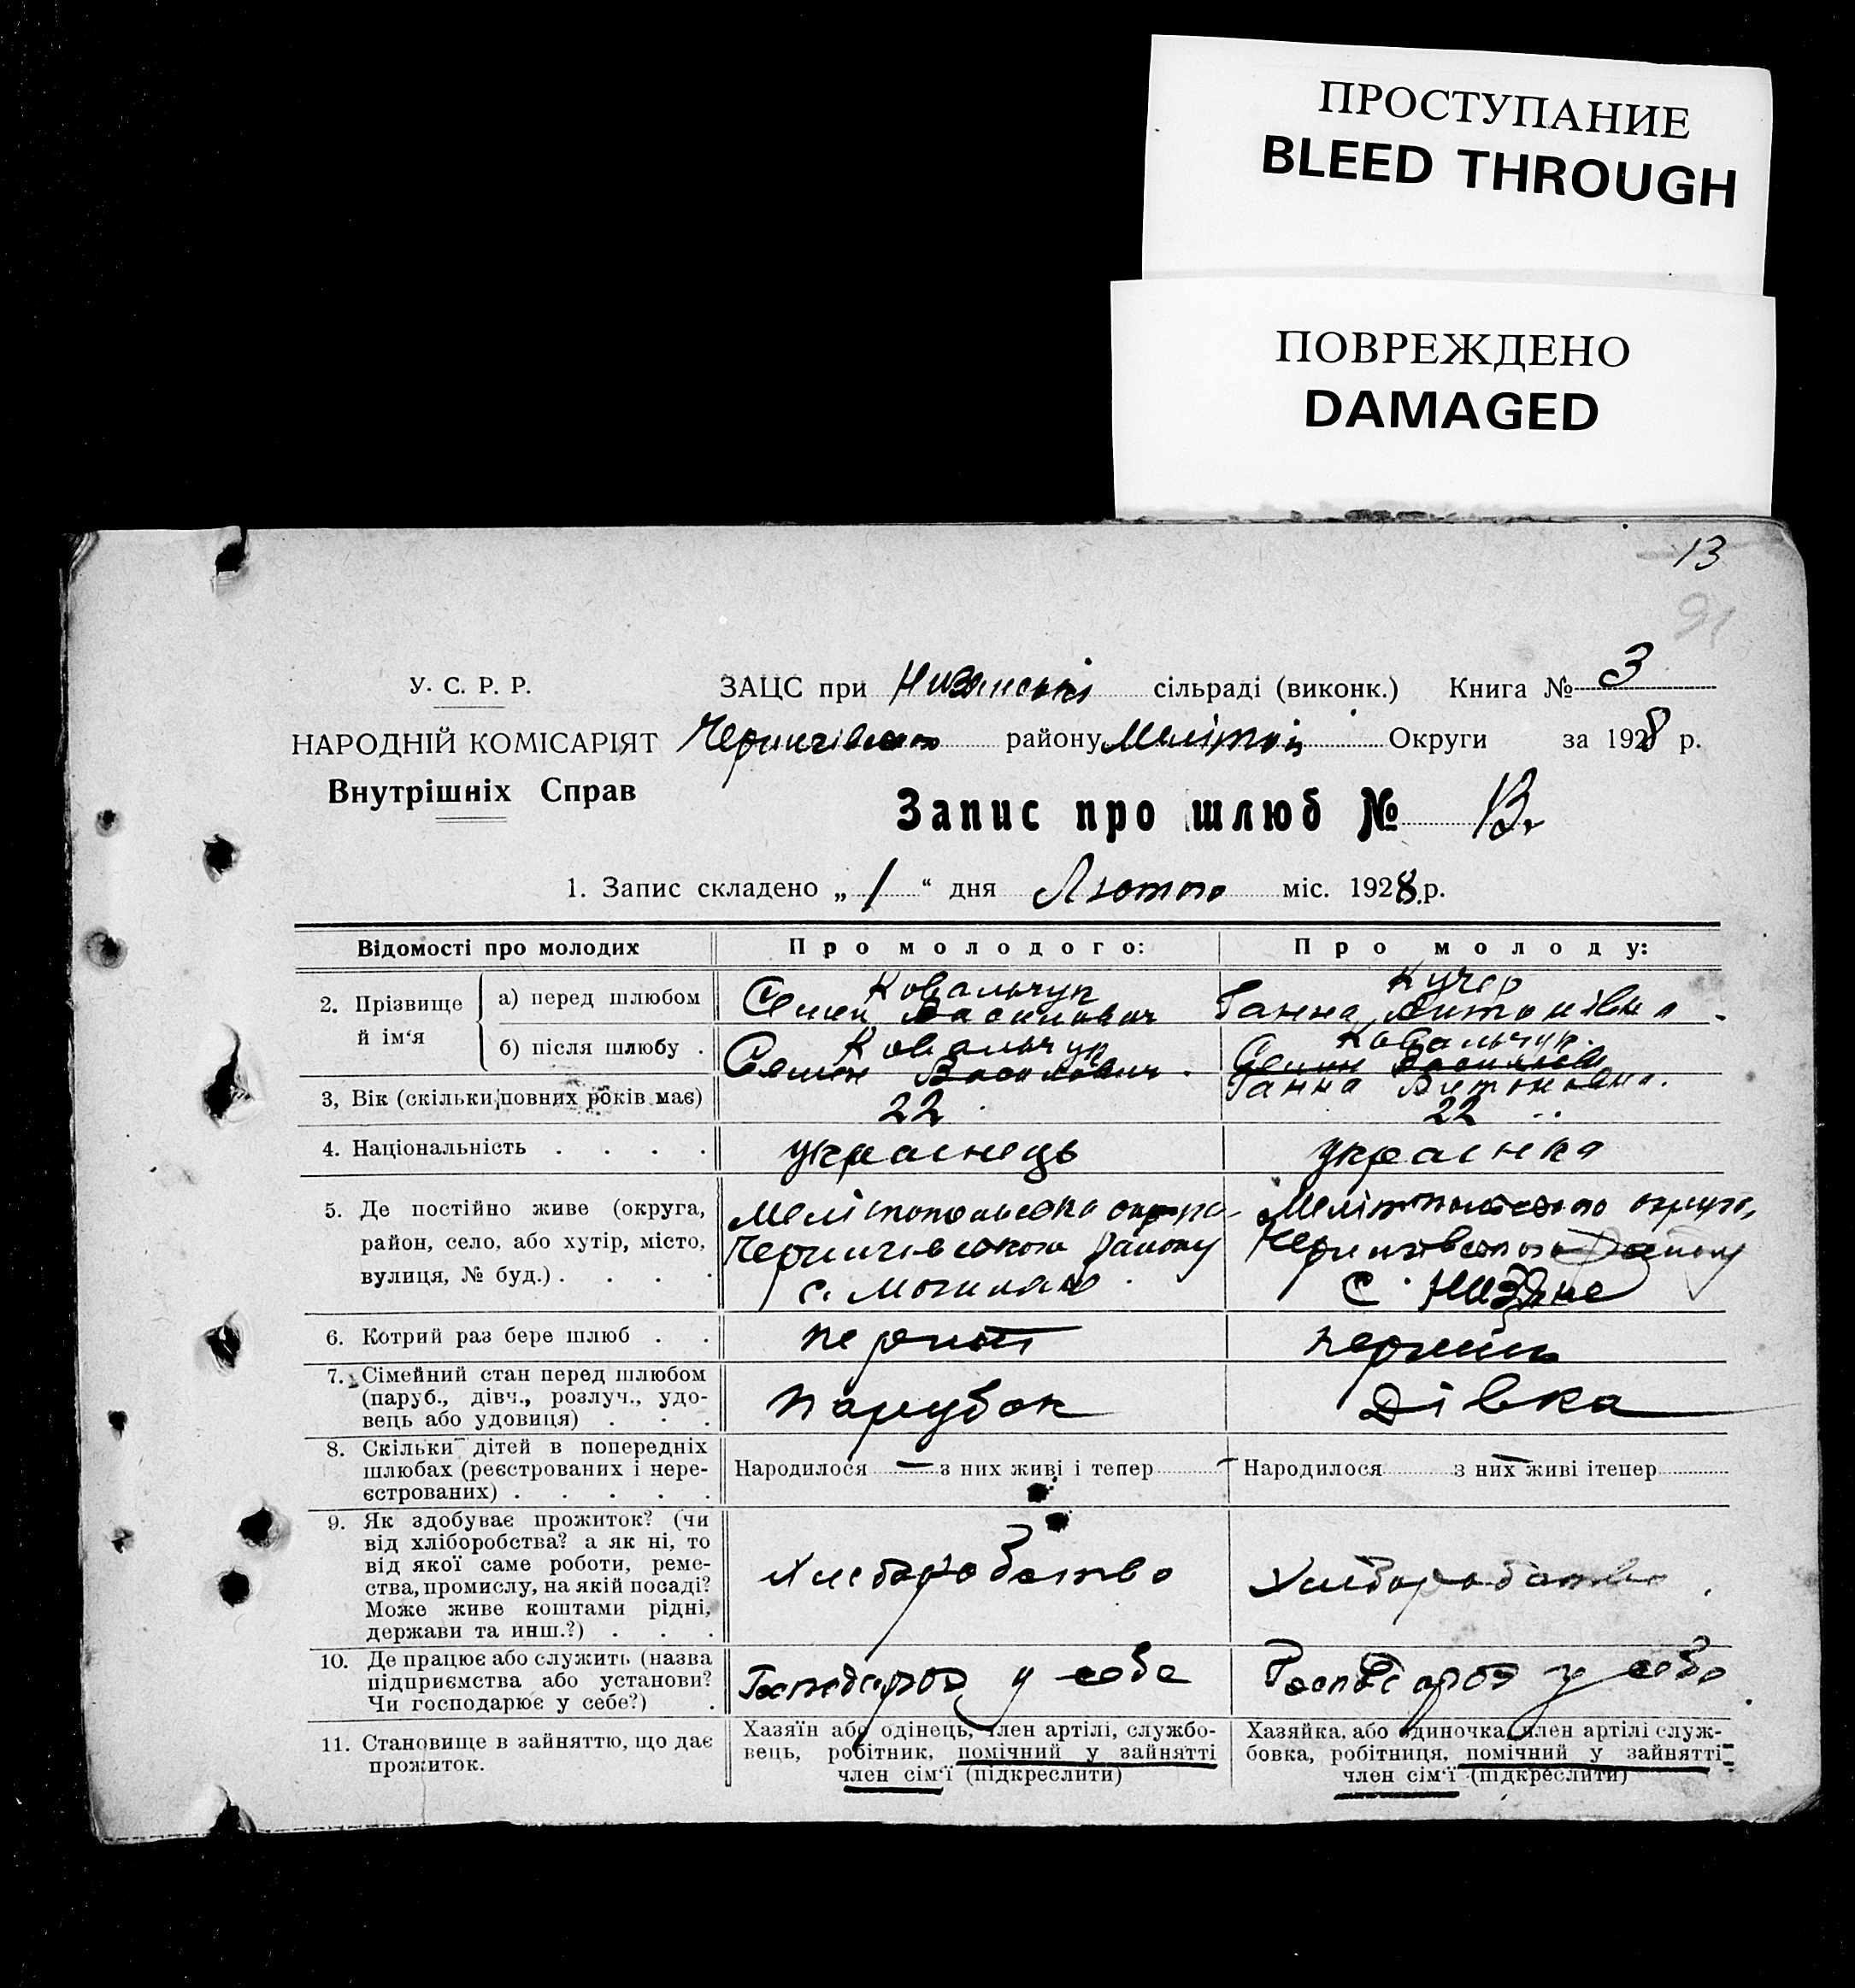 ПРОСТУПАНИЕ
BLEED THROUGH
ПОВРЕЖДЕНО
DAMAGED
13
91
У. С. Р. Р.
НАРОДНІЙ КОМІСАРІЯТ
Внутрішніх Справ
ЗАЦС при Низянські сільраді (виконк.) Книга № 3
району Мелітоп Округи за 1928 р.
Запис про шлюб № 13.
1. Запис складено „ 1 “ дня Лютого міс. 1928.р.
Відомості про молодих
Про молодого:
Про молоду:
2. Прізвище й ім‘я
а) перед шлюбом
Ковальчук
Семен Василович
Кучер
Ганна Антонівна
б) після шлюбу .
Ковальчук
Семен Василович.
Ковальчук.
Ганна Антонівна.
3, Вік (скільки повних років має)
22
22
4. Національність . . . .
українець
українка
5. Де постійно живе (округа,
район, село, або хутір, місто,
вулиця, № буд.) . . . .
Мелітопольська округа
Чернигівського району
с.
Мелітопольського округи,
Чернигівського району
с. Низяне
6. Котрий раз бере шлюб . .
первий
первий
7. Сімейний стан перед шлюбом
(паруб., дівч., розлуч., удо-
вець або удовиця) . . .
Парубок
Дівка
8. Скільки дітей в попередніх
шлюбах (реєстрованих і нере-
єстрованих) . . . . .
Народилося — з них живі і тепер —
Народилося з них живі ітепер
9. Як здобуває прожиток? (чи
від хліборобства? а як ні, то
від якої саме роботи, реме-
ства, промислу, на якій посаді?
Може живе коштами рідні,
держави та инш.?) . . .
Хлеборобство
Хліборобство
10. Де працює або служить (назва
підприємства або установи?
Чи господарює у себе?) .
Господарює у себе
Господарює у себе
11. Становище в зайняттю, що дає
прожиток.
Хазяїн або одінець, член артілі, службо-
вець, робітник, помічний у зайнятті
член сім‘ї (підкреслити)
Хазяйка, або одиночка, член артілі служ-
бовка, робітниця, помічний у зайнятті
член сім‘ї (підкреслити)